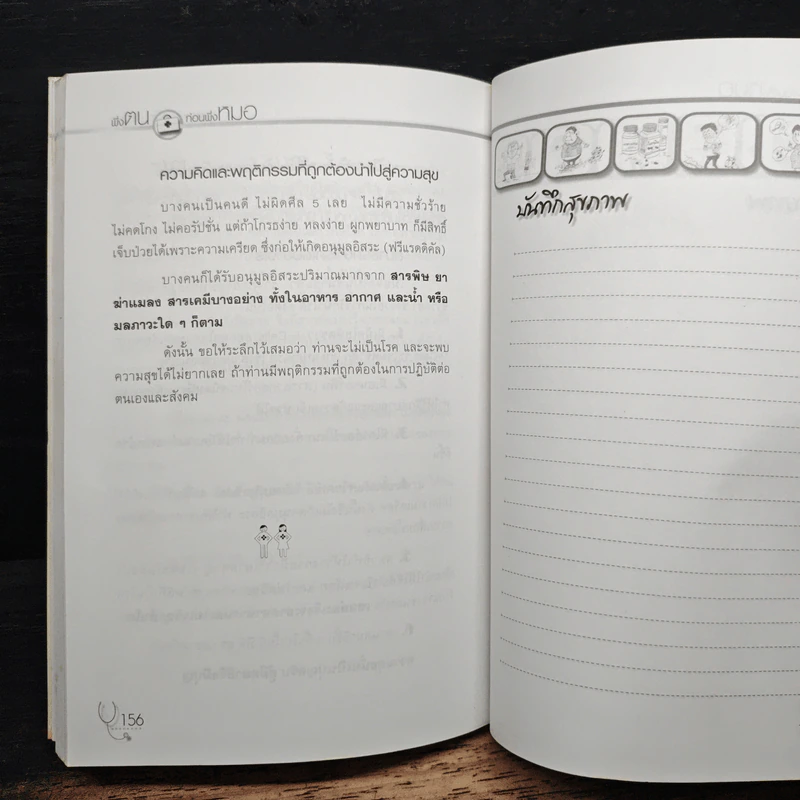 พึ่งตน ก่อนพึ่งหมอ
ความคิดและพฤติกรรมที่ถูกต้องนำไปสู่ความสุข
บางคนเป็นคนดี ไม่ผิดศีล 5 เลย ไม่มีความชั่วร้าย
ไม่คดโกง ไม่คอรัปชั่น แต่ถ้าโกรธง่าย หลงง่าย ผูกพยาบาท ก็มีสิทธิ์
เจ็บป่วยได้เพราะความเครียด ซึ่งก่อให้เกิดอนุมูลอิสระ (ฟรีแรดติคัล)
บางคนก็ได้รับอนุมูลอิสระปริมาณมากจาก สารพิษ ยา
ฆ่าแมลง สารเคมีบางอย่าง ทั้งในอาหาร อากาศ และน้ำ หรือ
มลภาวะใด ๆ ก็ตาม
ดังนั้น ขอให้ระลึกไว้เสมอว่า ท่านจะไม่เป็นโรค และจะพบ
ความสุขได้ไม่ยากเลย ถ้าท่านมีพฤติกรรมที่ถูกต้องในการปฏิบัติต่อ
ตนเองและสังคม
156
บันทึกสุขภาพ